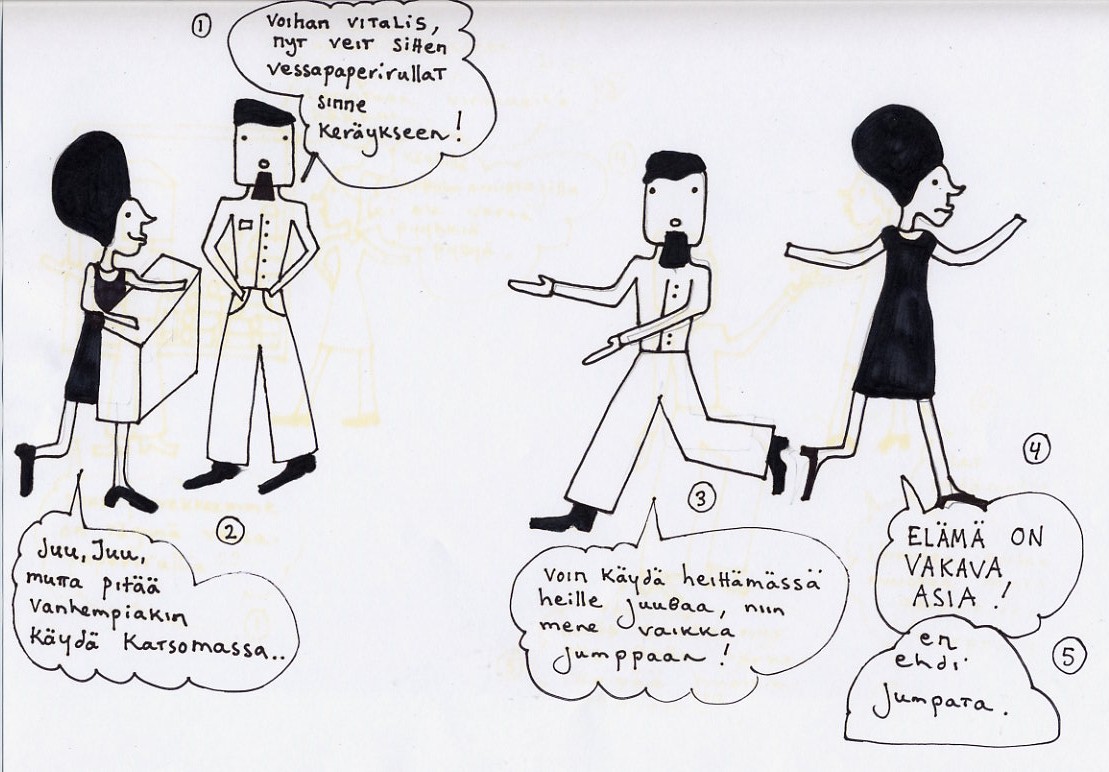 ①
Voihan Vitalis,
nyt veit sitten
vessapaperirullat
sinne
keräykseen!
②
Juu, Juu,
mutta pitää
vanhempiakin
käydä katsomassa..
③
Voin käydä heittämässä
heille juubaa, niin
mene vaikka
jumppaan!
④
ELÄMÄ ON
VAKAVA
ASIA!
⑤
en
ehdi
jumpata.